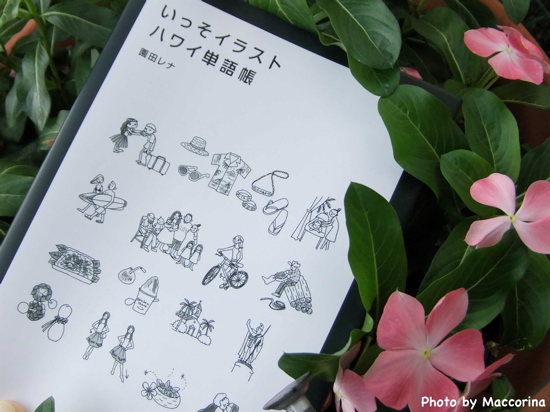 いっそイラスト
ハワイ単語帳
園田レナ
Photo by Maccorina